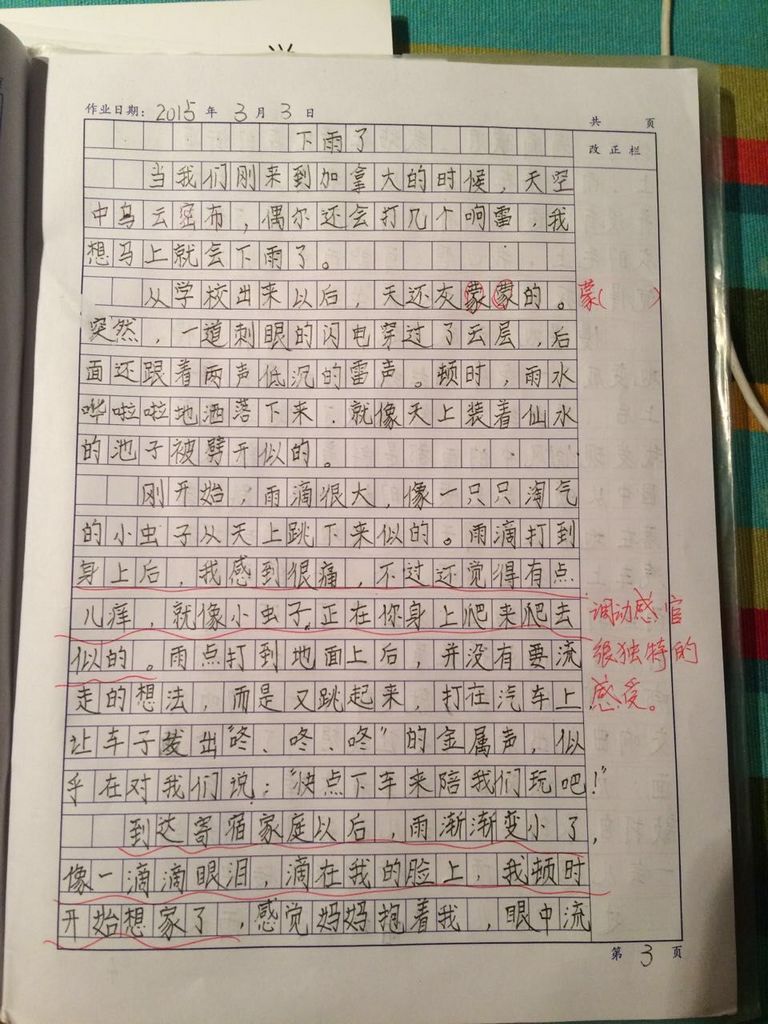 作业日期：2015 年 3 月 3 日
共 页
改正栏
下雨了
当我们刚来到加拿大的时候，天空
中乌云密布，偶尔还会打几个响雷，我
想马上就会下雨了。
从学校出来以后，天还灰蒙蒙的。
蒙( )
突然，一道刺眼的闪电穿过了云层，后
面还跟着两声低沉的雷声。顿时，雨水
哗啦啦地洒落下来，就像天上装着仙水
的池子被劈开似的。
刚开始，雨滴很大，像一只只淘气
的小虫子从天上跳下来似的。雨滴打到
身上后，我感到很痛，不过还觉得有点
儿痒，就像小虫子正在你身上爬来爬去
似的。雨点打到地面上后，并没有要流
调动感官
很独特的
感受。
走的想法，而是又跳起来，打在汽车上
让车子发出“咚、咚、咚”的金属声，似
乎在对我们说：“快点下车来陪我们玩吧！”
到达寄宿家庭以后，雨渐渐变小了，
像一滴滴眼泪，滴在我的脸上，我顿时
开始想家了，感觉妈妈抱着我，眼中流
第 3 页